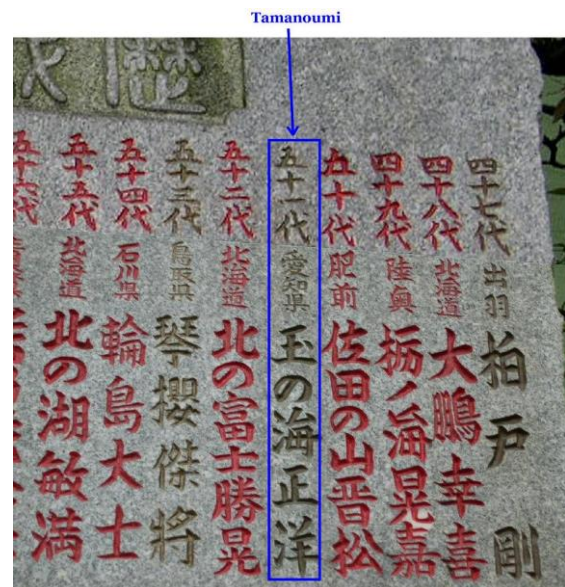 Tamanoumi
歴
四十七代 出羽 柏戸剛
四十八代 北海道 大鵬幸喜
四十九代 陸奥 栃ノ海晃嘉
五十代 肥前 佐田の山晋松
五十一代 愛知県 玉の海正洋
五十二代 北海道 北の富士勝晃
五十三代 鳥取県 琴櫻傑將
五十四代 石川県 輪島大士
五十五代 北海道 北の湖敏満
五十六代